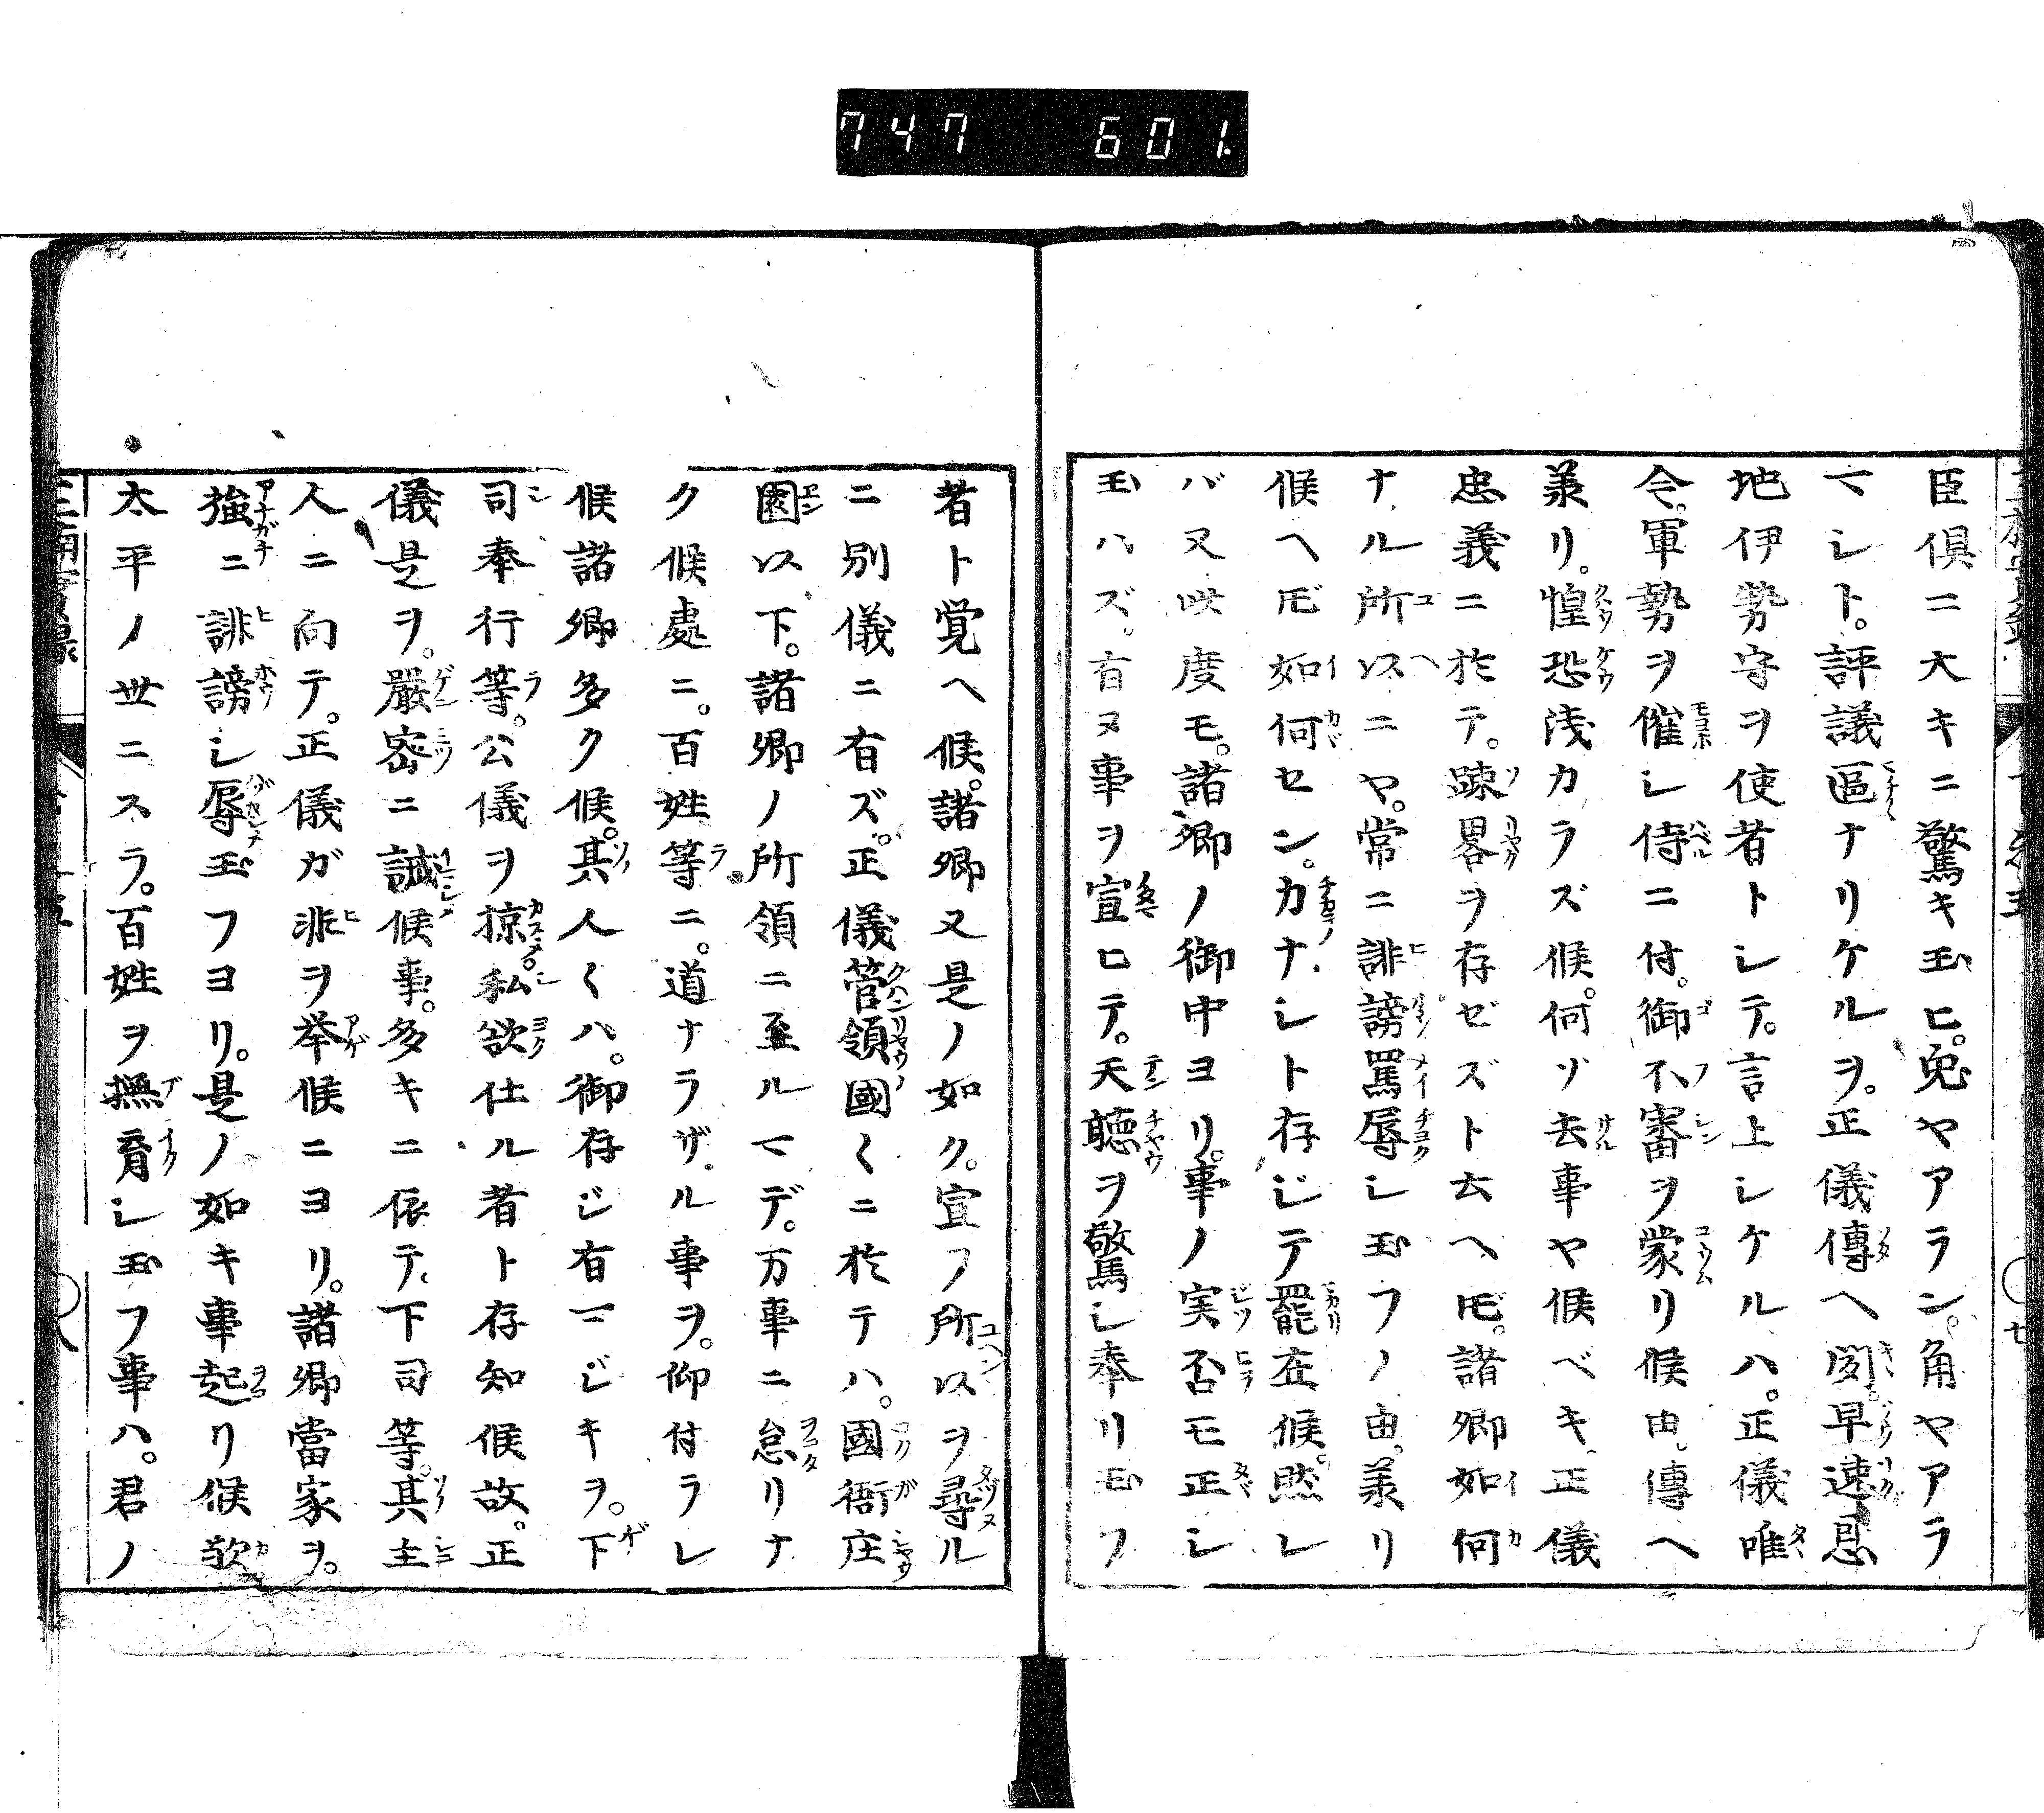 747 601.
臣倶ニ大キニ驚キ玉ヒ。兎ヤアラン。角ヤアラ
マシト。評議區ナリケルヲ。正儀傳ヘ聞。早速恩
地伊勢守ヲ使者トシテ。言上シケルハ。正儀唯
今。軍勢ヲ催シ侍ニ付。御不審ヲ蒙リ候由。傳ヘ
羕リ。惶恐浅カラズ候。何ゾ去事ヤ候ベキ。正儀
忠義ニ於テ。踈畧ヲ存ゼズト云ヘ𪜈。諸卿如何
ナル所以ニヤ。常ニ誹謗罵辱シ玉フノ由。羕リ
候ヘ𪜈如何セン。力ナシト存ジテ罷在候。然レ
バ又此度モ。諸卿ノ御中ヨリ。事ノ実否モ正シ
玉ハズ。有ヌ事ヲ宣ヒテ。天聴ヲ驚シ奉リ玉フ
者ト覚ヘ候。諸卿又是ノ如ク。宣フ所以ヲ尋ル
ニ別儀ニ有ズ。正儀菅領國〱ニ於テハ。國衙庄
園以下。諸卿ノ所領ニ至ルマデ。万事ニ怠リナ
ク候處ニ。百姓等ニ。道ナラザル事ヲ。仰付ラレ
候諸卿多ク候。其人〱ハ。御存ジ有マジキヲ。下
司奉行等。公儀ヲ掠。私欲仕ル者ト存知候故。正
儀是ヲ。嚴密ニ誡候事。多キニ依テ。下司等。其主
人ニ向テ。正儀ガ非ヲ挙候ニヨリ。諸卿當家ヲ。
強ニ誹謗シ辱玉フヨリ。是ノ如キ事起リ候歟
太平ノ世ニスラ。百姓ヲ撫育シ玉フ事ハ。君ノ